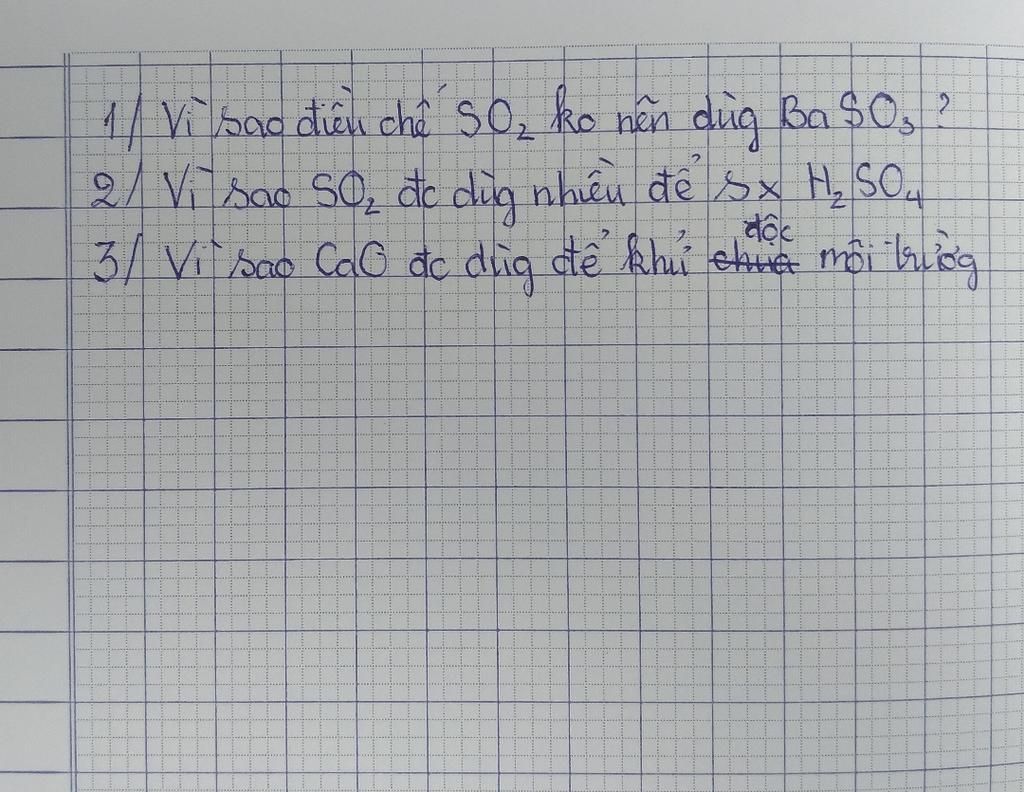 1/ Vì sao điều chế SO₂ ko nên dùg BaSO₃?
2/ Vì sao SO₂ đc dùg nhiều để sx H₂SO₄
3/ Vì sao CaO đc dùg để khử độc môi trườg